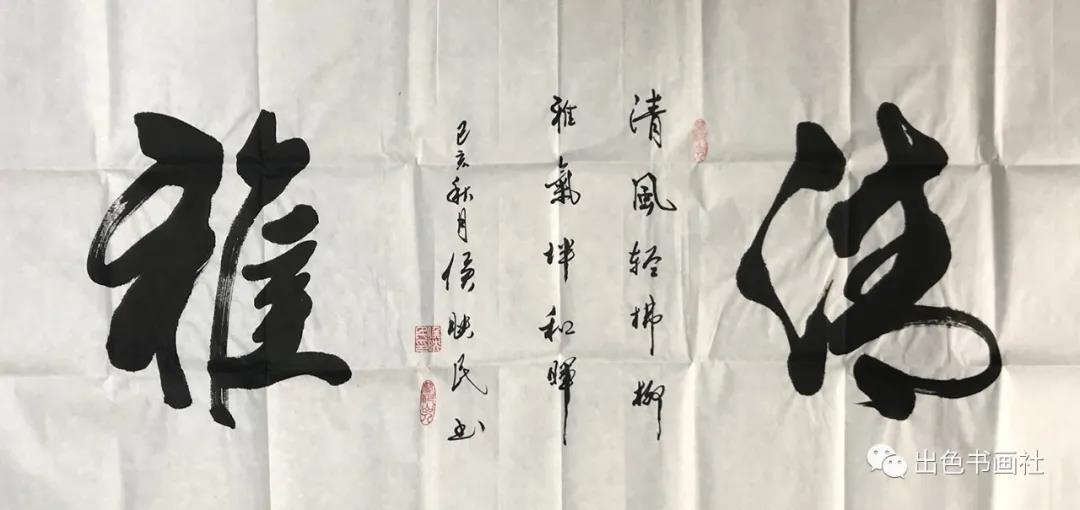 清
清風轻拂柳
雅氣和暉
己亥秋月映民书
雅
出色书画社